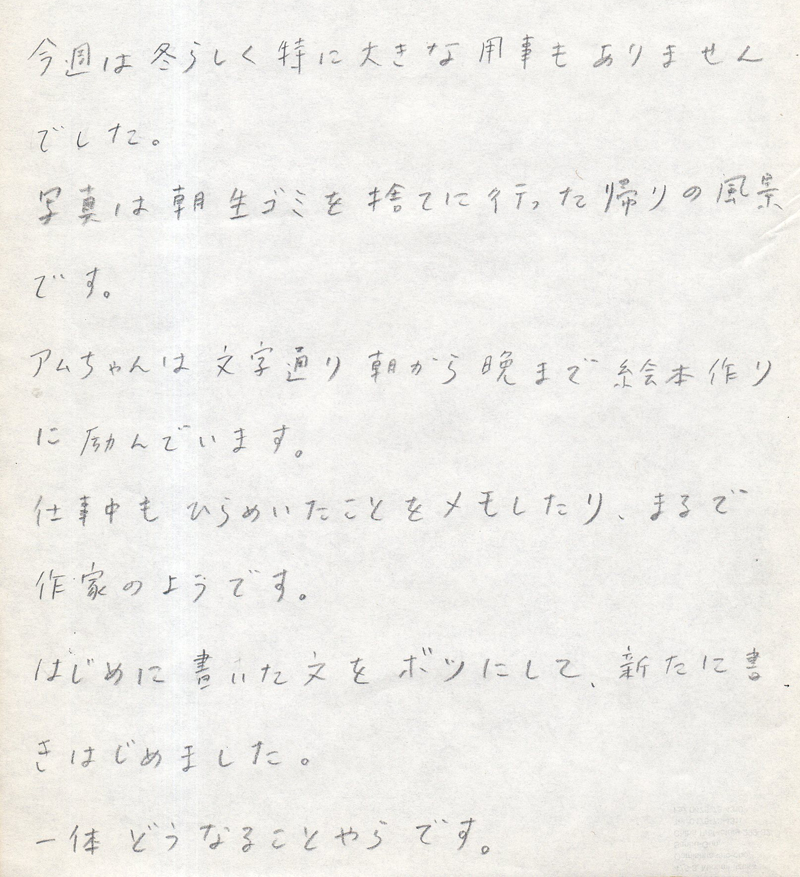 今週は冬らしく特に大きな用事もありません
でした。
写真は朝生ゴミを捨てに行った帰りの風景
です。
アムちゃんは文字通り朝から晩まで絵本作り
に励んでいます。
仕事中もひらめいたことをメモしたり、まるで
作家のようです。
はじめに書いた文をボツにして、新たに書
きはじめました。
一体どうなることやらです。